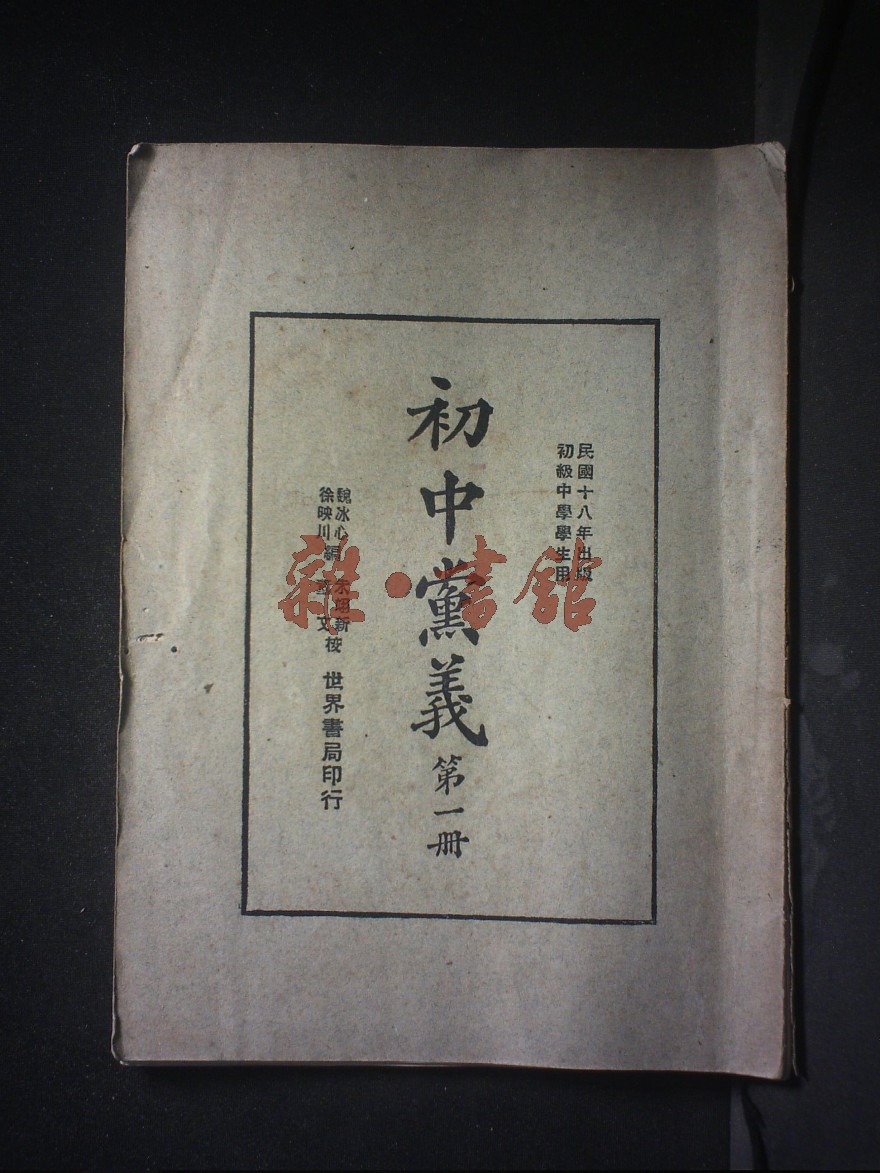 民國十八年出版
初級中學學生用
初中黨義 第一冊
魏冰心
徐映川 編
朱翊新
文 校
世界書局印行
雜·書館